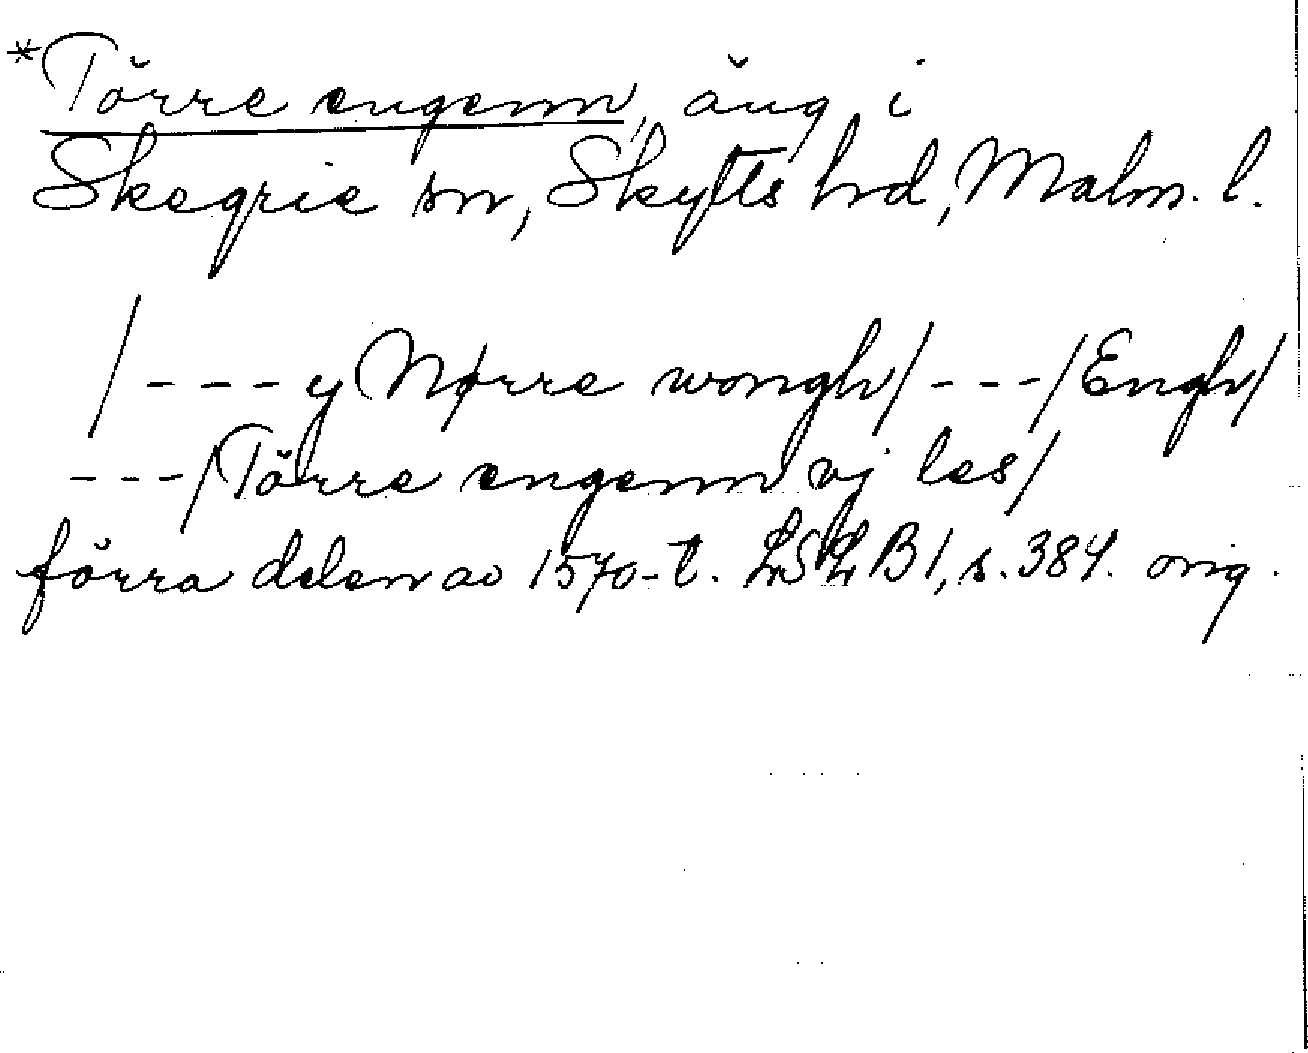 *Törre engenn, äng i
Skegrie sn, Skytts hd, Malm. l.
/---y Nørre wongh/---/Engh/
---/Törre engenn vj les/
förra delen av 1570-t. LSLB1, s. 384. orig.